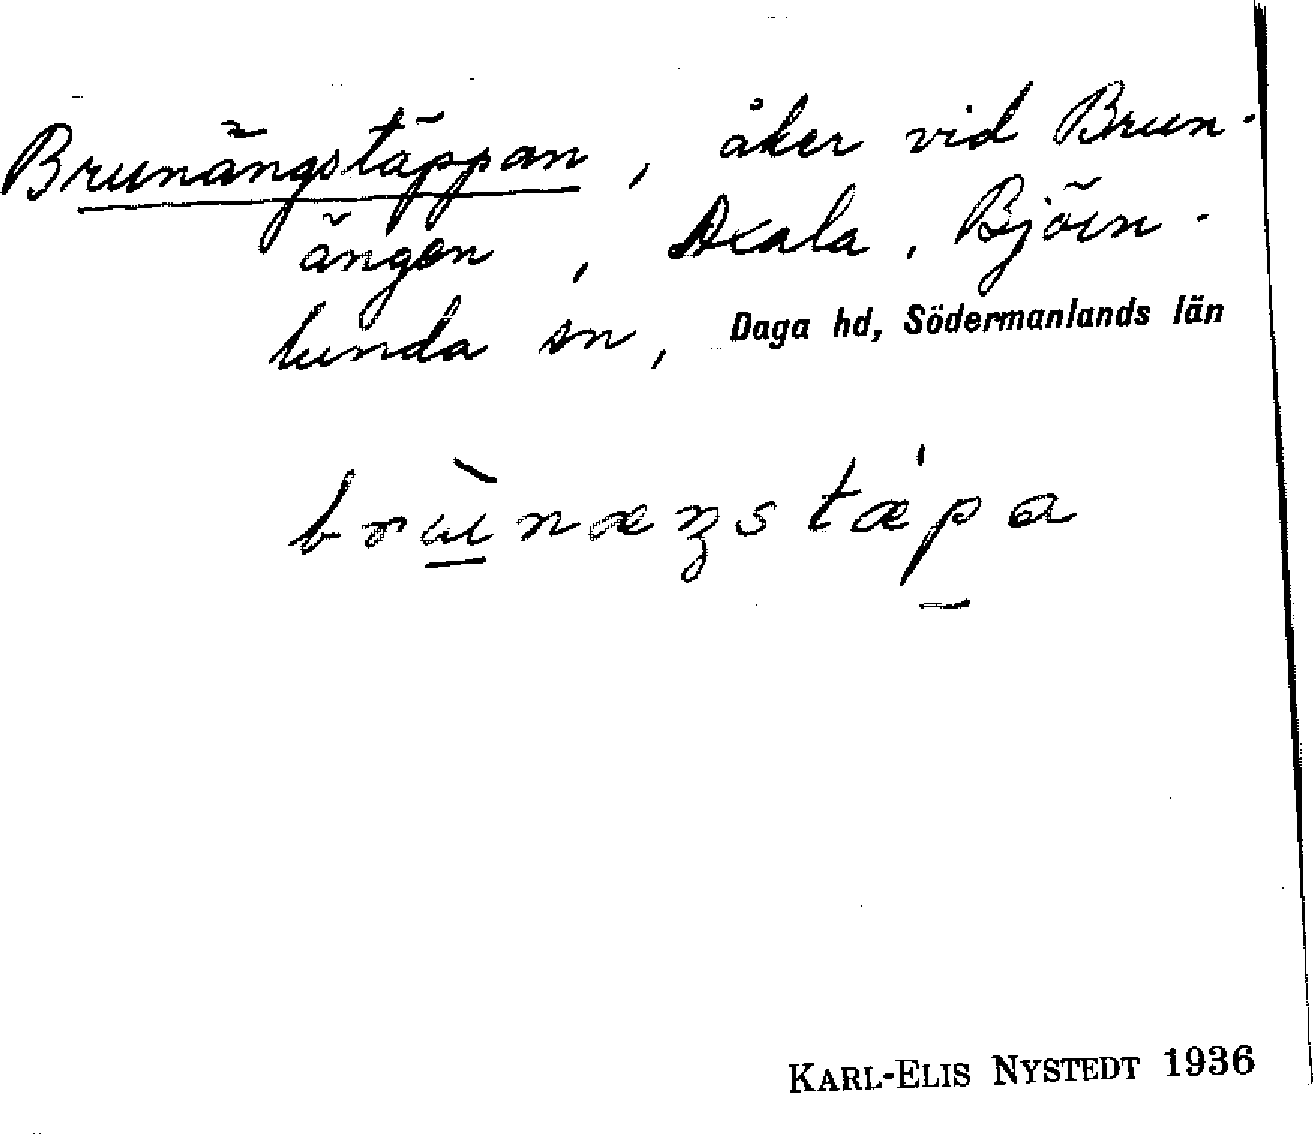 Brunängstäppan, åker vid Brun-
ängen, Axala, Björn-
lunda sn, Daga hd, Södermanlands län
brɯ̀næŋstæ'pa
KARL-ELIS NYSTEDT 1936